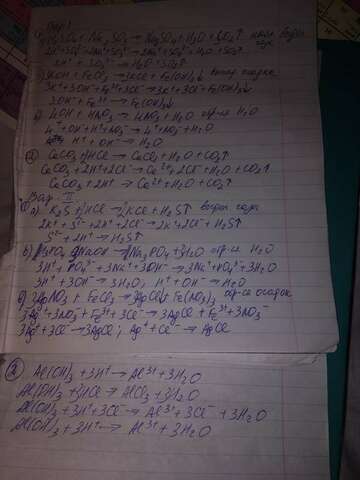 Вар I
а) H2SO4 + Na2SO3 → Na2SO4 + H2O + SO2↑
2H⁺ + SO4²⁻ + 2Na⁺ + SO3²⁻ → 2Na⁺ + SO4²⁻ + H2O + SO2↑
2H⁺ + SO3²⁻ → H2O + SO2↑
3KOH + FeCl3 → 3KCl + Fe(OH)3↓ осадка
3K⁺ + 3OH⁻ + Fe³⁺ + 3Cl⁻ → 3K⁺ + 3Cl⁻ + Fe(OH)3↓
3OH⁻ + Fe³⁺ → Fe(OH)3↓
LiOH + HNO3 → LiNO3 + H2O обр-е H2O
Li⁺ + OH⁻ + H⁺ + NO3⁻ → Li⁺ + NO3⁻ + H2O
H⁺ + OH⁻ → H2O
② CaCO3 + 2HCl → CaCl2 + H2O + CO2↑
CaCO3 + 2H⁺ + 2Cl⁻ → Ca²⁺ + 2Cl⁻ + H2O + CO2↑
CaCO3 + 2H⁺ → Ca²⁺ + H2O + CO2↑
Вар. II
① а) K2S + 2HCl → 2KCl + H2S↑ газа
2K⁺ + S²⁻ + 2H⁺ + 2Cl⁻ → 2K⁺ + 2Cl⁻ + H2S↑
S²⁻ + 2H⁺ → H2S↑
б) H3PO4 + 3NaOH → Na3PO4 + 3H2O обр-е H2O
3H⁺ + PO4³⁻ + 3Na⁺ + 3OH⁻ → 3Na⁺ + PO4³⁻ + 3H2O
3H⁺ + 3OH⁻ → 3H2O; H⁺ + OH⁻ → H2O
в) 3AgNO3 + FeCl3 → 3AgCl↓ + Fe(NO3)3 обр-е осадок
3Ag⁺ + 3NO3⁻ + Fe³⁺ + 3Cl⁻ → 3AgCl + Fe³⁺ + 3NO3⁻
3Ag⁺ + 3Cl⁻ → 3AgCl; Ag⁺ + Cl⁻ → AgCl
② Al(OH)3 + 3H⁺ → Al³⁺ + 3H2O
Al(OH)3 + 3HCl → AlCl3 + 3H2O
Al(OH)3 + 3H⁺ + 3Cl⁻ → Al³⁺ + 3Cl⁻ + 3H2O
Al(OH)3 + 3H⁺ → Al³⁺ + 3H2O